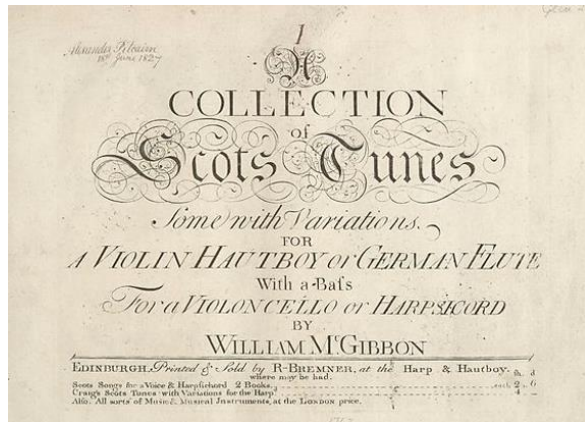 1
Alexander Pitcairn
18th June 1827
A
COLLECTION
of
Scots Tunes
Some with Variations.
FOR
A VIOLIN HAUTBOY or GERMAN FLUTE
With a Bass
For a VIOLONCELLO or HARPSICORD
BY
WILLIAM McGIBBON
EDINBURGH. Printed & Sold by R. BREMNER, at the Harp & Hautboy.
where may be had.
Scots Songs for a Voice & Harpsichord 2 Books. each 2 6
Craig's Scots Tunes with Variations for the Harp 4
Also. All sorts of Music & Musical Instruments, at the LONDON price.